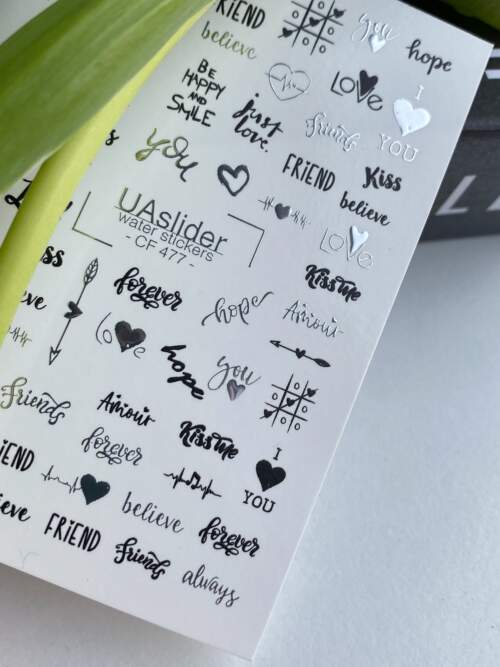 FRIEND
you
hope
believe
BE
HAPPY
AND
SMILE
LOVE
I
YOU
just
love.
friends
FRIEND
Kiss
you
believe
UAslider
water stickers
- CF 477 -
LOVE
Kiss me
forever
hope
Amour
love
hope
you
Friends
Amour
Kiss me
forever
I
YOU
believe
forever
FRIEND
friends
always